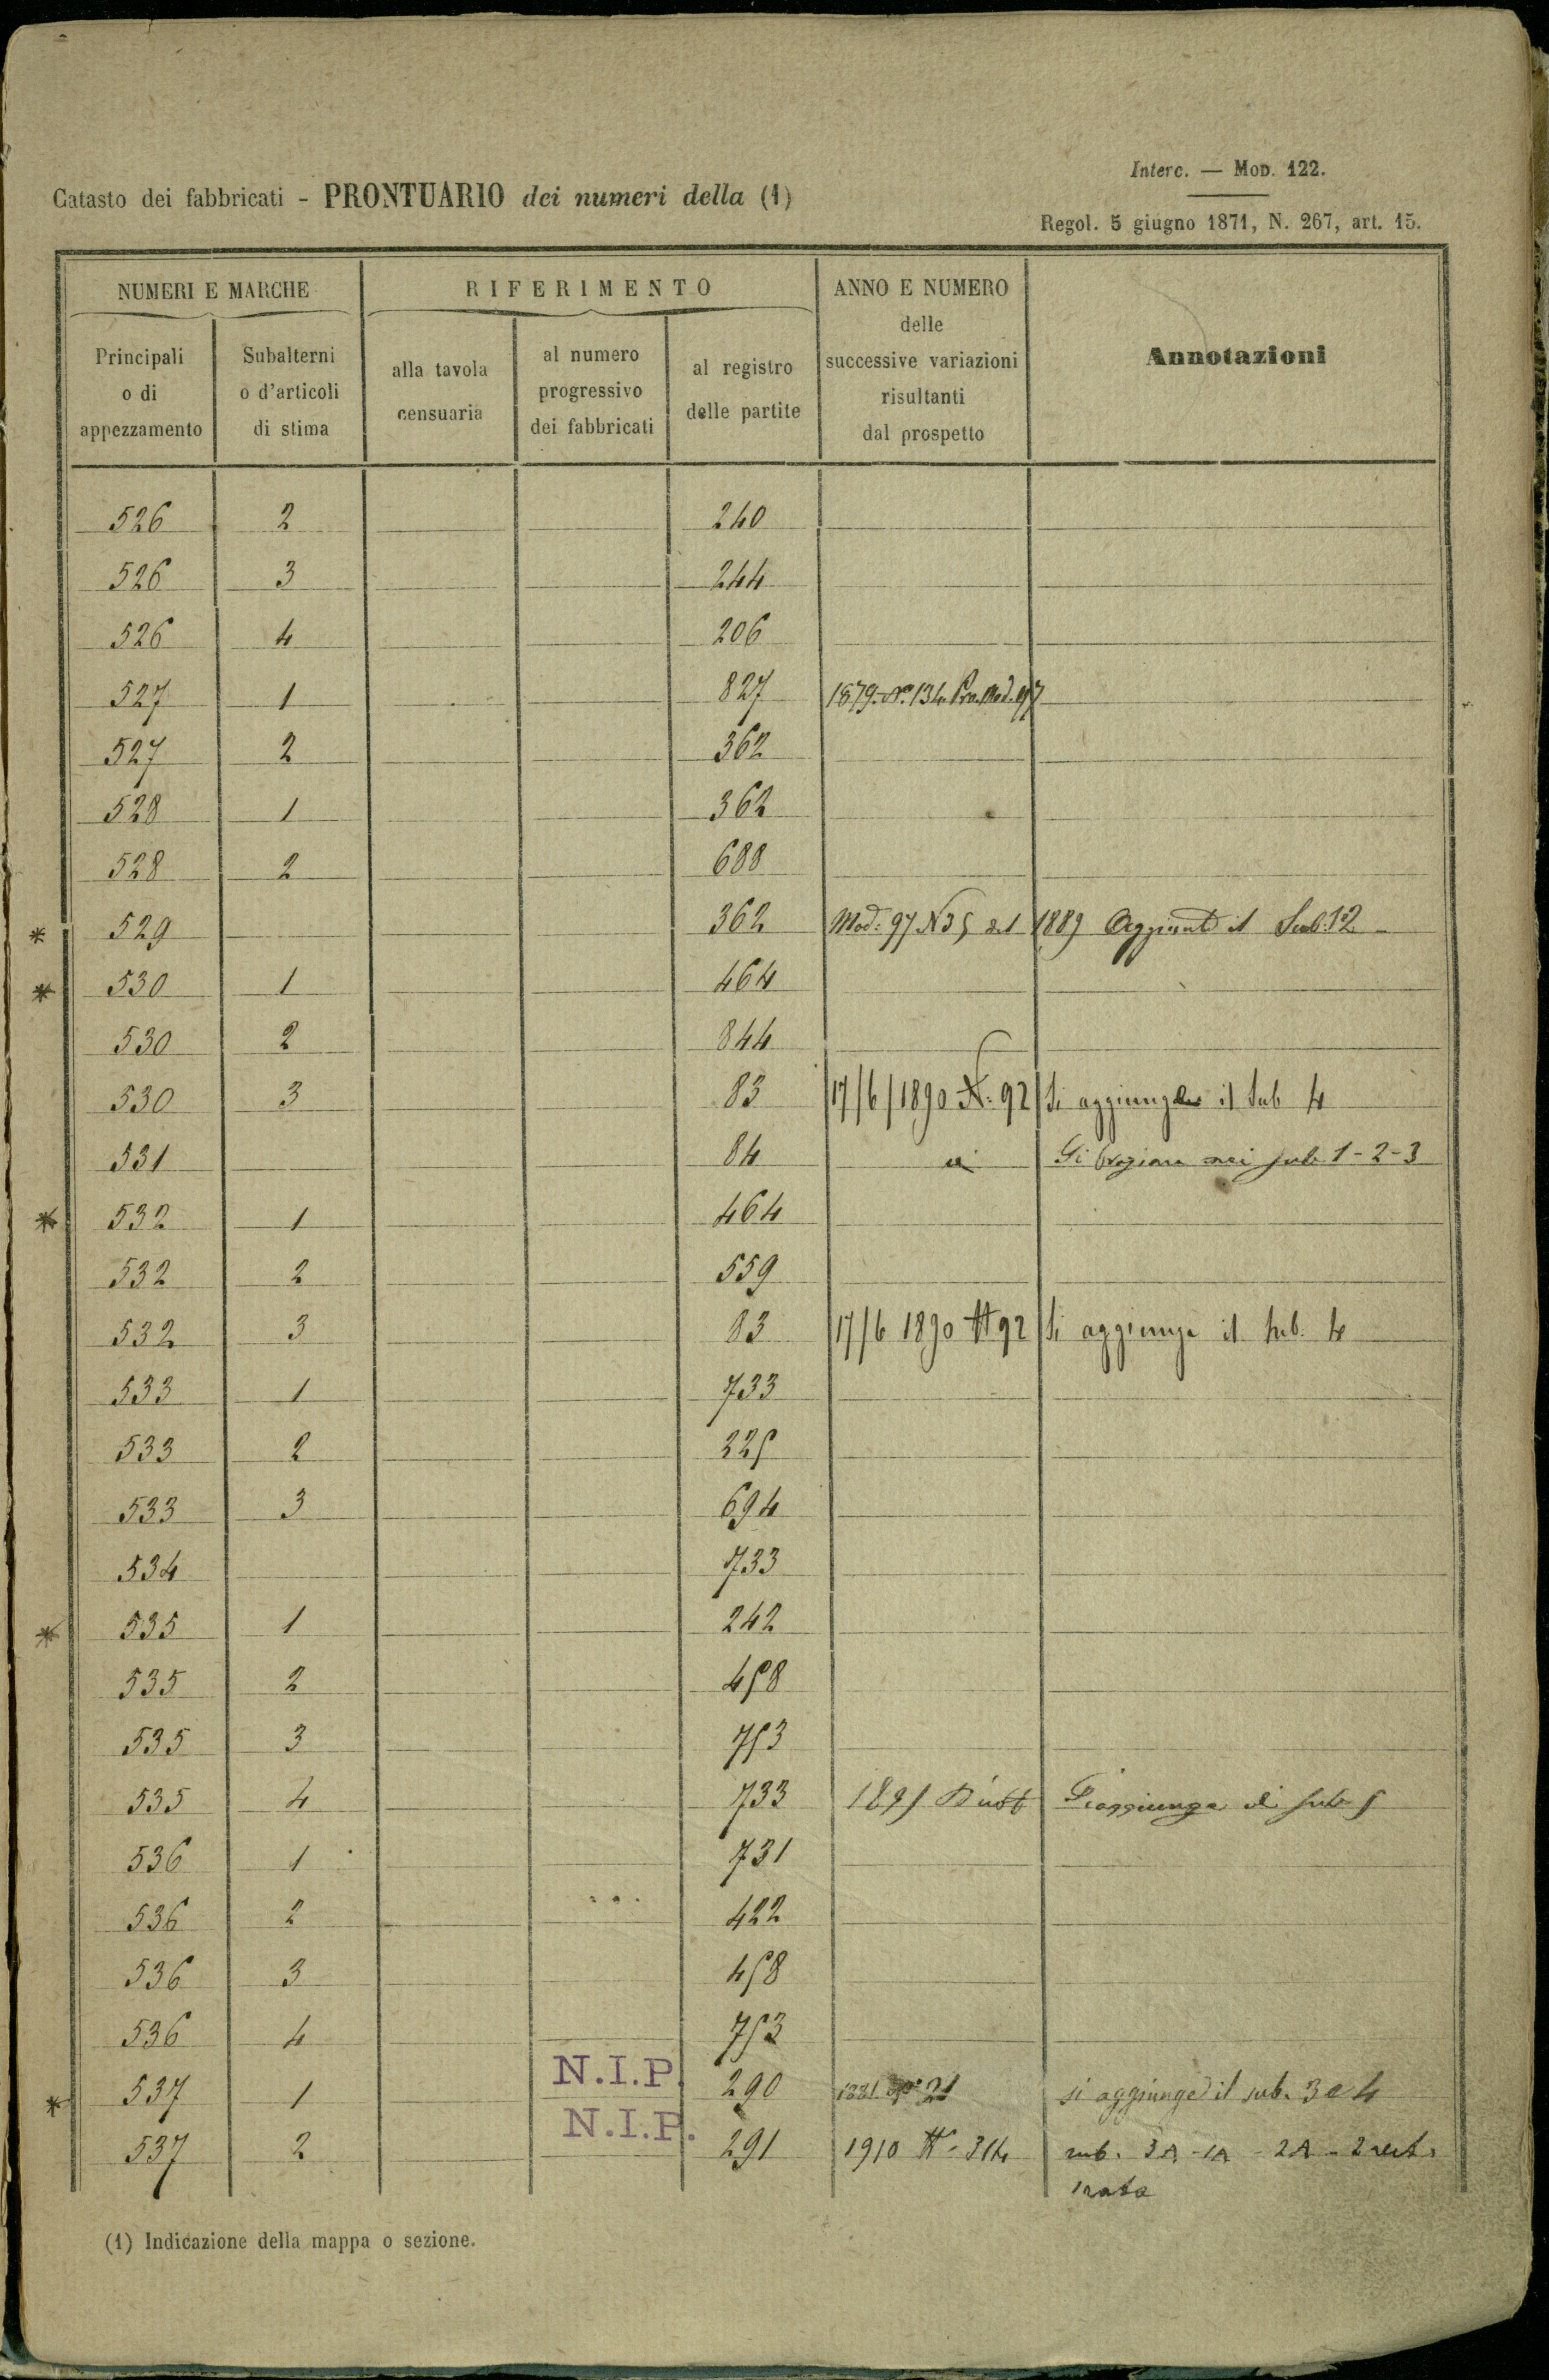 Interc. — Mod. 122.
Catasto dei fabbricati - PRONTUARIO dei numeri della (1)
Regol. 5 giugno 1871, N. 267, art. 15.
NUMERI E MARCHE RIFERIMENTO ANNO E NUMERO delle successive variazioni risultanti dal prospetto Annotazioni
Principali o di appezzamento Subalterni o d'articoli di stima alla tavola censuaria al numero progressivo dei fabbricati al registro delle partite
526 2 240
526 3 244
526 4 206
527 1 827 1879 N° 134 Mod. 97
527 2 362
528 1 362
528 2 688
* 529 362 Mod: 97 N 35 del 1889 Aggiunto il Sub. 12
* 530 1 464
530 2 844
530 3 83 17/6/1890 N. 92 Si aggiunge il Sub 4
531 84 Si nei sub 1-2-3
* 532 1 464
532 2 559
532 3 83 17/6 1890 N 92 Si aggiunge il sub. 4
533 1 733
533 2 225
533 3 694
534 733
* 535 1 242
535 2 458
535 3 753
535 4 733 1895 Si aggiunge il sub 5
536 1 731
536 2 422
536 3 458
536 4 753
* 537 1 N.I.P. 290 1881 N° 21 si aggiunge il sub. 3 e 4
537 2 N.I.P. 291 1910 N. 314 sub. 3A - 1A - 2A - 2
(1) Indicazione della mappa o sezione.